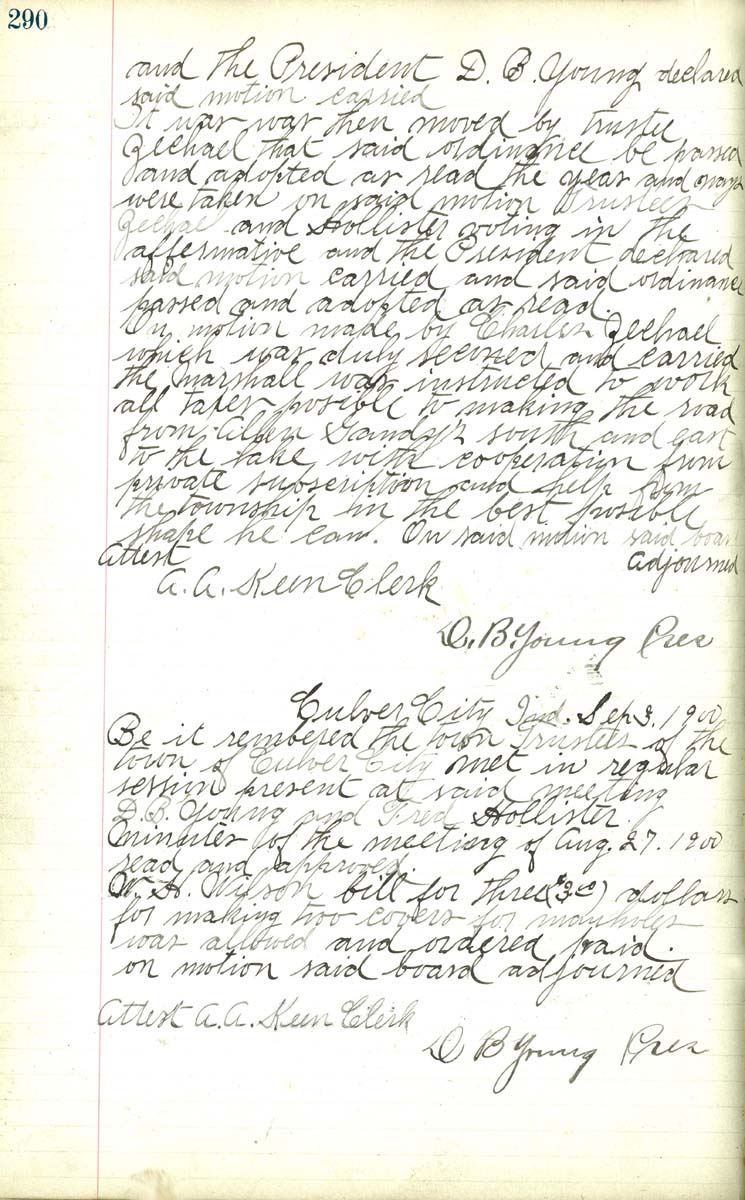 290
and the President D. B. Young declared
said motion carried
It was was then moved by trustee
Zechael that said ordinance be passed
and adopted as read the yeas and nays
were taken on said motion Trustees
Zechael and Hollister voting in the
affermative and the President declared
said motion carried and said ordinance
passed and adopted as read.
On motion made by Charles Zechael
which was duly seconed and carried
the marshall was instructed to work
all taxes posible to making the road
from Allen Gandy's south and east
to the lake with cooperation from
private subscription and help from
the township in the best posible
shape he can. On said motion said board
Attest adjourned
A. A. Keen Clerk
D. B. Young Pres
Culver City Ind. Sep 3. 1900
Be it rembered the town Trustees of the
town of Culver City met in regular
session present at said meeting
D. B. Young and Fred Hollister
minutes of the meeting of Aug. 27. 1900
read and approved.
W. H. Wilson bill for three ($3.00) dollars
for making two covers for manholes
was allowed and ordered paid.
on motion said board adjourned
Attest A. A. Keen Clerk
D B Young Pres